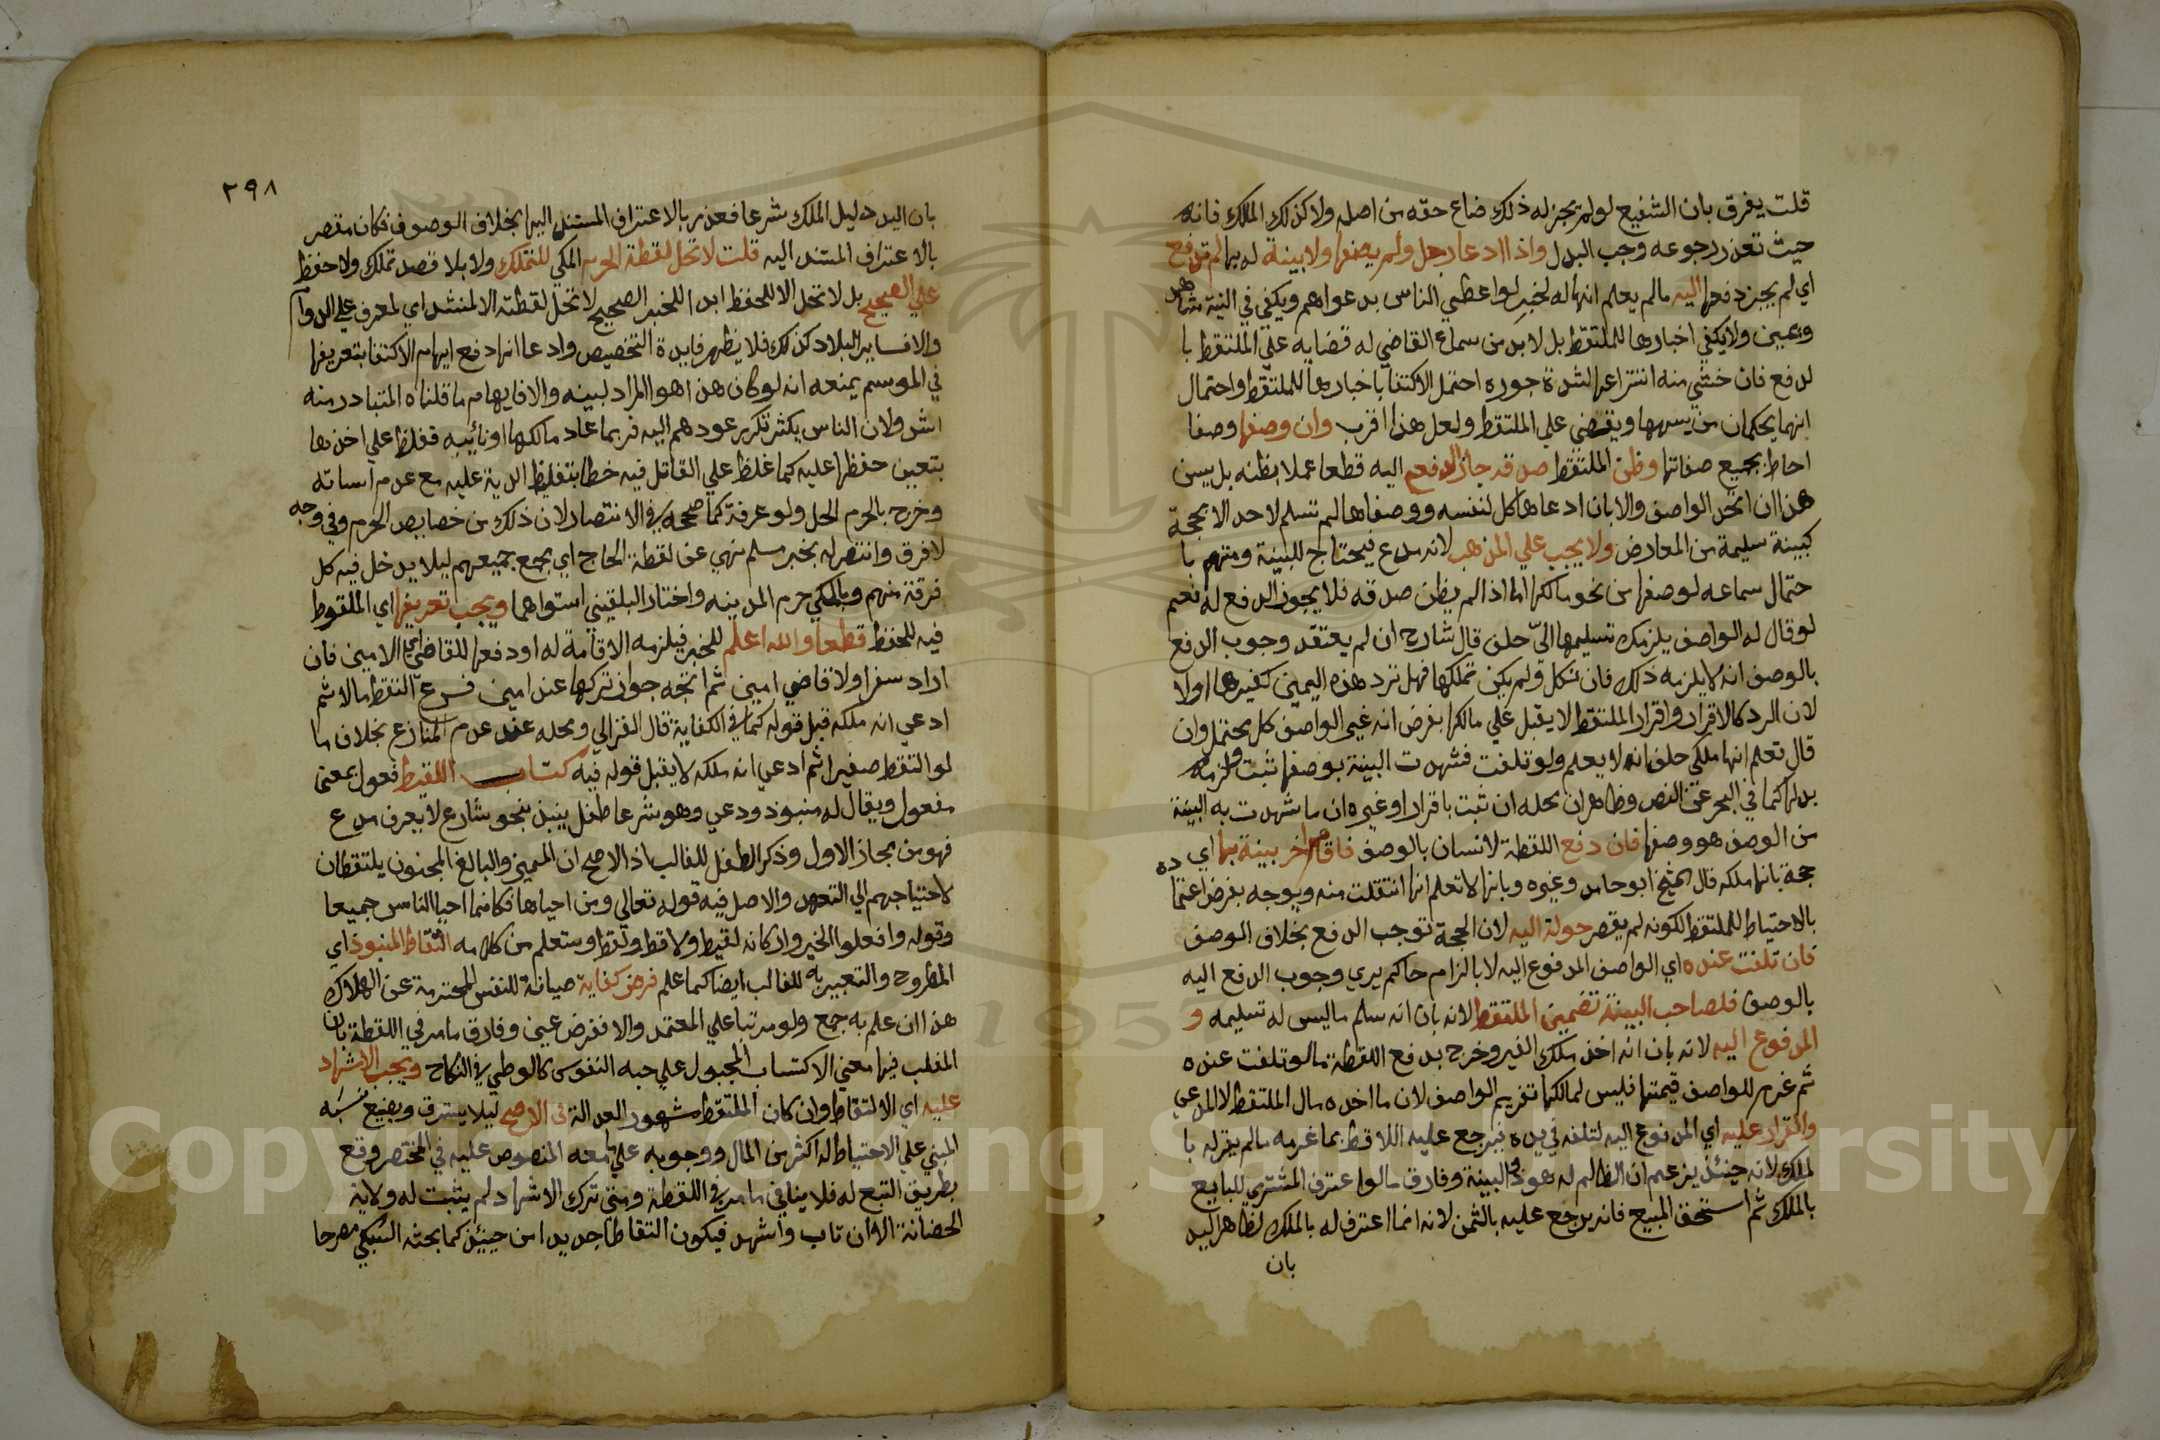 قلت يفرق بان الشفيع لو لم يجز له ذلك ضاع حقه من اصله ولا كذلك الملك فانه
حيث تعذر رجوعه وجب البدل واذا ادعا رجل ولم يصفها ولا بينة له بها لم تدفع
اي لم يجز دفعها اليه ما لم يعلم انها له لخبر لو اعطي الناس بدعواهم ويكفي في البينة شاهد
ويمين ولا يكفي اخبارها للملتقط بل لا بد من سماع القاضي له قضايه علي الملتقط با
لدفع فان خشي منه انتزاعها لشدة جوره احتمل الاكتفا باخبارها للملتقط واحتمال
انهما يحكمان من يسمعها ويقضي علي الملتقط ولعل هذا اقرب وان وصفها وصفا
احاط بجميع صفاتها وظن الملتقط صدقه جاز الدفع اليه قطعا عملا بظنه بل يسن
هذا ان اتحد الواصف والا بان ادعاها كل لنفسه ووصفاها لم تسلم لاحد الا بحجة
كبينة سليمة من المعارض ولا يجب علي المذهب لانه مدع فيحتاج للبينة ومتهم با
حتمال سماعه لوصفها من نحو مالكها اما اذا لم يظن صدقه فلا يجوز الدفع له نعم
لو قال له الواصف يلزمك تسليمها الي حلف قال شارح ان لم يعتقد وجوب الدفع
بالوصف انه لا يلزمه ذلك فان نكل ولم يكن تملكها فهل ترد هذه اليمين كغيرها اولا
لان الرد كالاقرار واقرار الملتقط لا يقبل علي مالكها بفرض انه غير الواصف كل محتمل وان
قال تعلم انها ملكي حلف انه لا يعلم ولو تلفت فشهدت البينة بوصفها ثبت ولزمه
بدلها كما في البحر عن النص وظاهر ان محله ان ثبت باقرار او غيره ان ما شهدت به البينة
من الوصف هو وصفها فان دفع اللقطة لانسان بالوصف فاقام اخر بينة بها اي
حجة بانها ملكه قال الشيخ ابو حامد وغيره وبانها لا تعلم انها انتقلت منه ويوجه بفرض اعتماده
بالاحتياط للملتقط لكونه لم يقصر حولت اليه لان الحجة توجب الدفع بخلاف الوصف
فان تلفت عنده اي الواصف المدفوع اليه لا بالزام حاكم يري وجوب الدفع اليه
بالوصف فلصاحب البينة تضمين الملتقط لانه بان انه سلم ما ليس له تسليمه و
المدفوع اليه لانه بان انه اخذ ملك الغير وخرج بدفع اللقطة ما لو تلفت عنده
ثم غرم للواصف قيمتها فليس لمالكها تغريم الواصف لان ما اخذه مال الملتقط لا المدعي
والقرار عليه اي المدفوع اليه لتلفه في يده فيرجع عليه اللاقط بما غرمه ما لم يقر له با
لملك لانه حينئذ يزعم ان الظالم له هو ذو البينة وفارق ما لو اعترف المشتري للبايع
بالملك ثم استحق المبيع فانه يرجع عليه بالثمن لانه انما اعترف له بالملك لظاهر اليد
بان
٢٩٨
بان اليد دليل الملك شرعا فعذر بالاعتراف المستند اليها بخلاف الوصف فكان مقصر
بالاعتراف المستند اليه قلت لا تحل لقطة الحرم المكي للتملك ولا بلا قصد تملك ولا حفظ
علي الصحيح بل لا تحل الا للحفظ ابدا للخبر الصحيح لا تحل لقطته الا لمنشد اي لمعرف علي الدوام
والا فساير البلاد كذلك فلا يظهر فايدة التخصيص وادعا انها دفع ايهام الاكتفا بتعريفها
في الموسم يمنعه انه لو كان هذا هو المراد لبينه والا فايهام ما قلناه المتبادر منه
اشد ولان الناس يكثر تكرر عودهم اليه فربما عاد مالكها او نائبه فغلظ علي اخذها
بتعين حفظها عليه كما غلظ علي القاتل فيه خطا بتغليظ الدية عليه مع عدم اساته
وخرج بالحرم الحل ولو عرفة كما صححه في الانتصار لان ذلك من خصايص الحرم وفي وجه
لا فرق وانتصر له بخبر مسلم نهي عن لقطة الحاج اي بجمع جميعهم ليلا يدخل فيه كل
فرقة منهم وبالمكي حرم المدينه واختار البلقيني استواهما ويجب تعريفها اي الملقوط
فيه للحفظ قطعا والله اعلم للخبر فيلزمه الاقامة له او دفعها للقاضي اي الامين فان
اراد سفرا ولا قاضي امين ثم اتجه جواز تركها عند امين فرع التقط مالا ثم
ادعي انه ملكه قبل قوله كما في الكفاية قال الغزالي ومحله عند عدم المنازع بخلاف ما
لو التقط صغيرا ثم ادعي انه ملكه لا يقبل قوله فيه كتاب اللقيط فعول بمعني
مفعول ويقال له منبوذ ودعي وهو شرعا طفل ينبذ بنحو شارع لا يعرف مدع
فهو من مجاز الاول وذكر الطفل للغالب اذ الاصح ان المميز والبالغ المجنون يلتقطان
لاحتياجهم الي التعهد والاصل فيه قوله تعالي ومن احياها فكانما احيا الناس جميعا
وقوله وافعلوا الخير واركانه لقيط ولاقط ولقط وستعلم من كلامه التقاط المنبوذ اي
المطروح والتعبير به للغالب ايضا كما علم فرض كفاية صيانة للنفس المحترمة عن الهلاك
هذا ان علم به جمع ولو مرتبا علي المعتمد والا ففرض عين وفارق ما مر في اللقطة بان
المغلب فيها معني الاكتساب المجبول علي حبه النفوس كالوطي في النكاح ويجب الاشهاد
عليه اي الالتقاط وان كان الملتقط مشهور العدالة في الاصح ليلا يسترق ويضيع نسبه
المبني علي الاحتياط له اكثر من المال ووجوبه علي ما معه المنصوص عليه في المختصر وقع
بطريق التبع له فلا ينافي ما مر في اللقطة ومتي ترك الاشهاد لم يثبت له ولاية
الحضانة الا ان تاب واشهد فيكون التقاطا جديدا من حينئذ كما بحثه السبكي مصرحا